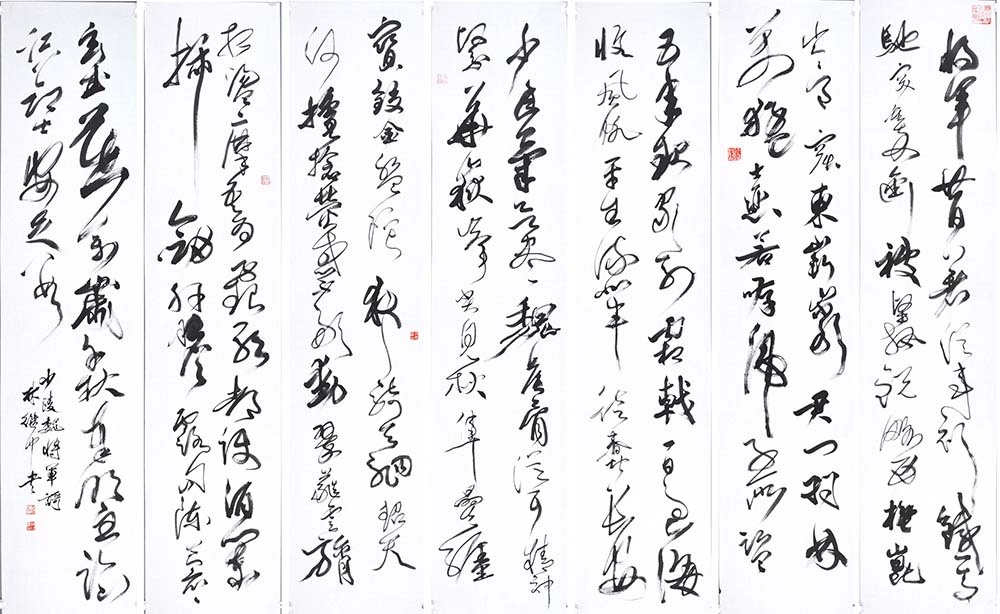 將軍昔著從事衫鐵馬
馳突重兩銜被堅執銳略西極崑
崙月窟東嶄巖君門羽林
萬猛士惡若哮虎子所監
五年起家列霜戟一日過海
收風帆平生流輩徒蠢蠢長安
少年氣欲盡魏侯骨聳精神
緊華嶽峰尖見秋隼星躔
寶鉸金盤陀夜騎天駟超天
河欃槍熒惑不敢動翠蕤雲旓
相盪摩吾為子起歌都護酒闌
插劍肝膽露鉤陳蒼蒼
玄武暮萬歲千秋奉明主臨
江節士安足數
少陵魏將軍歌
林繼中書